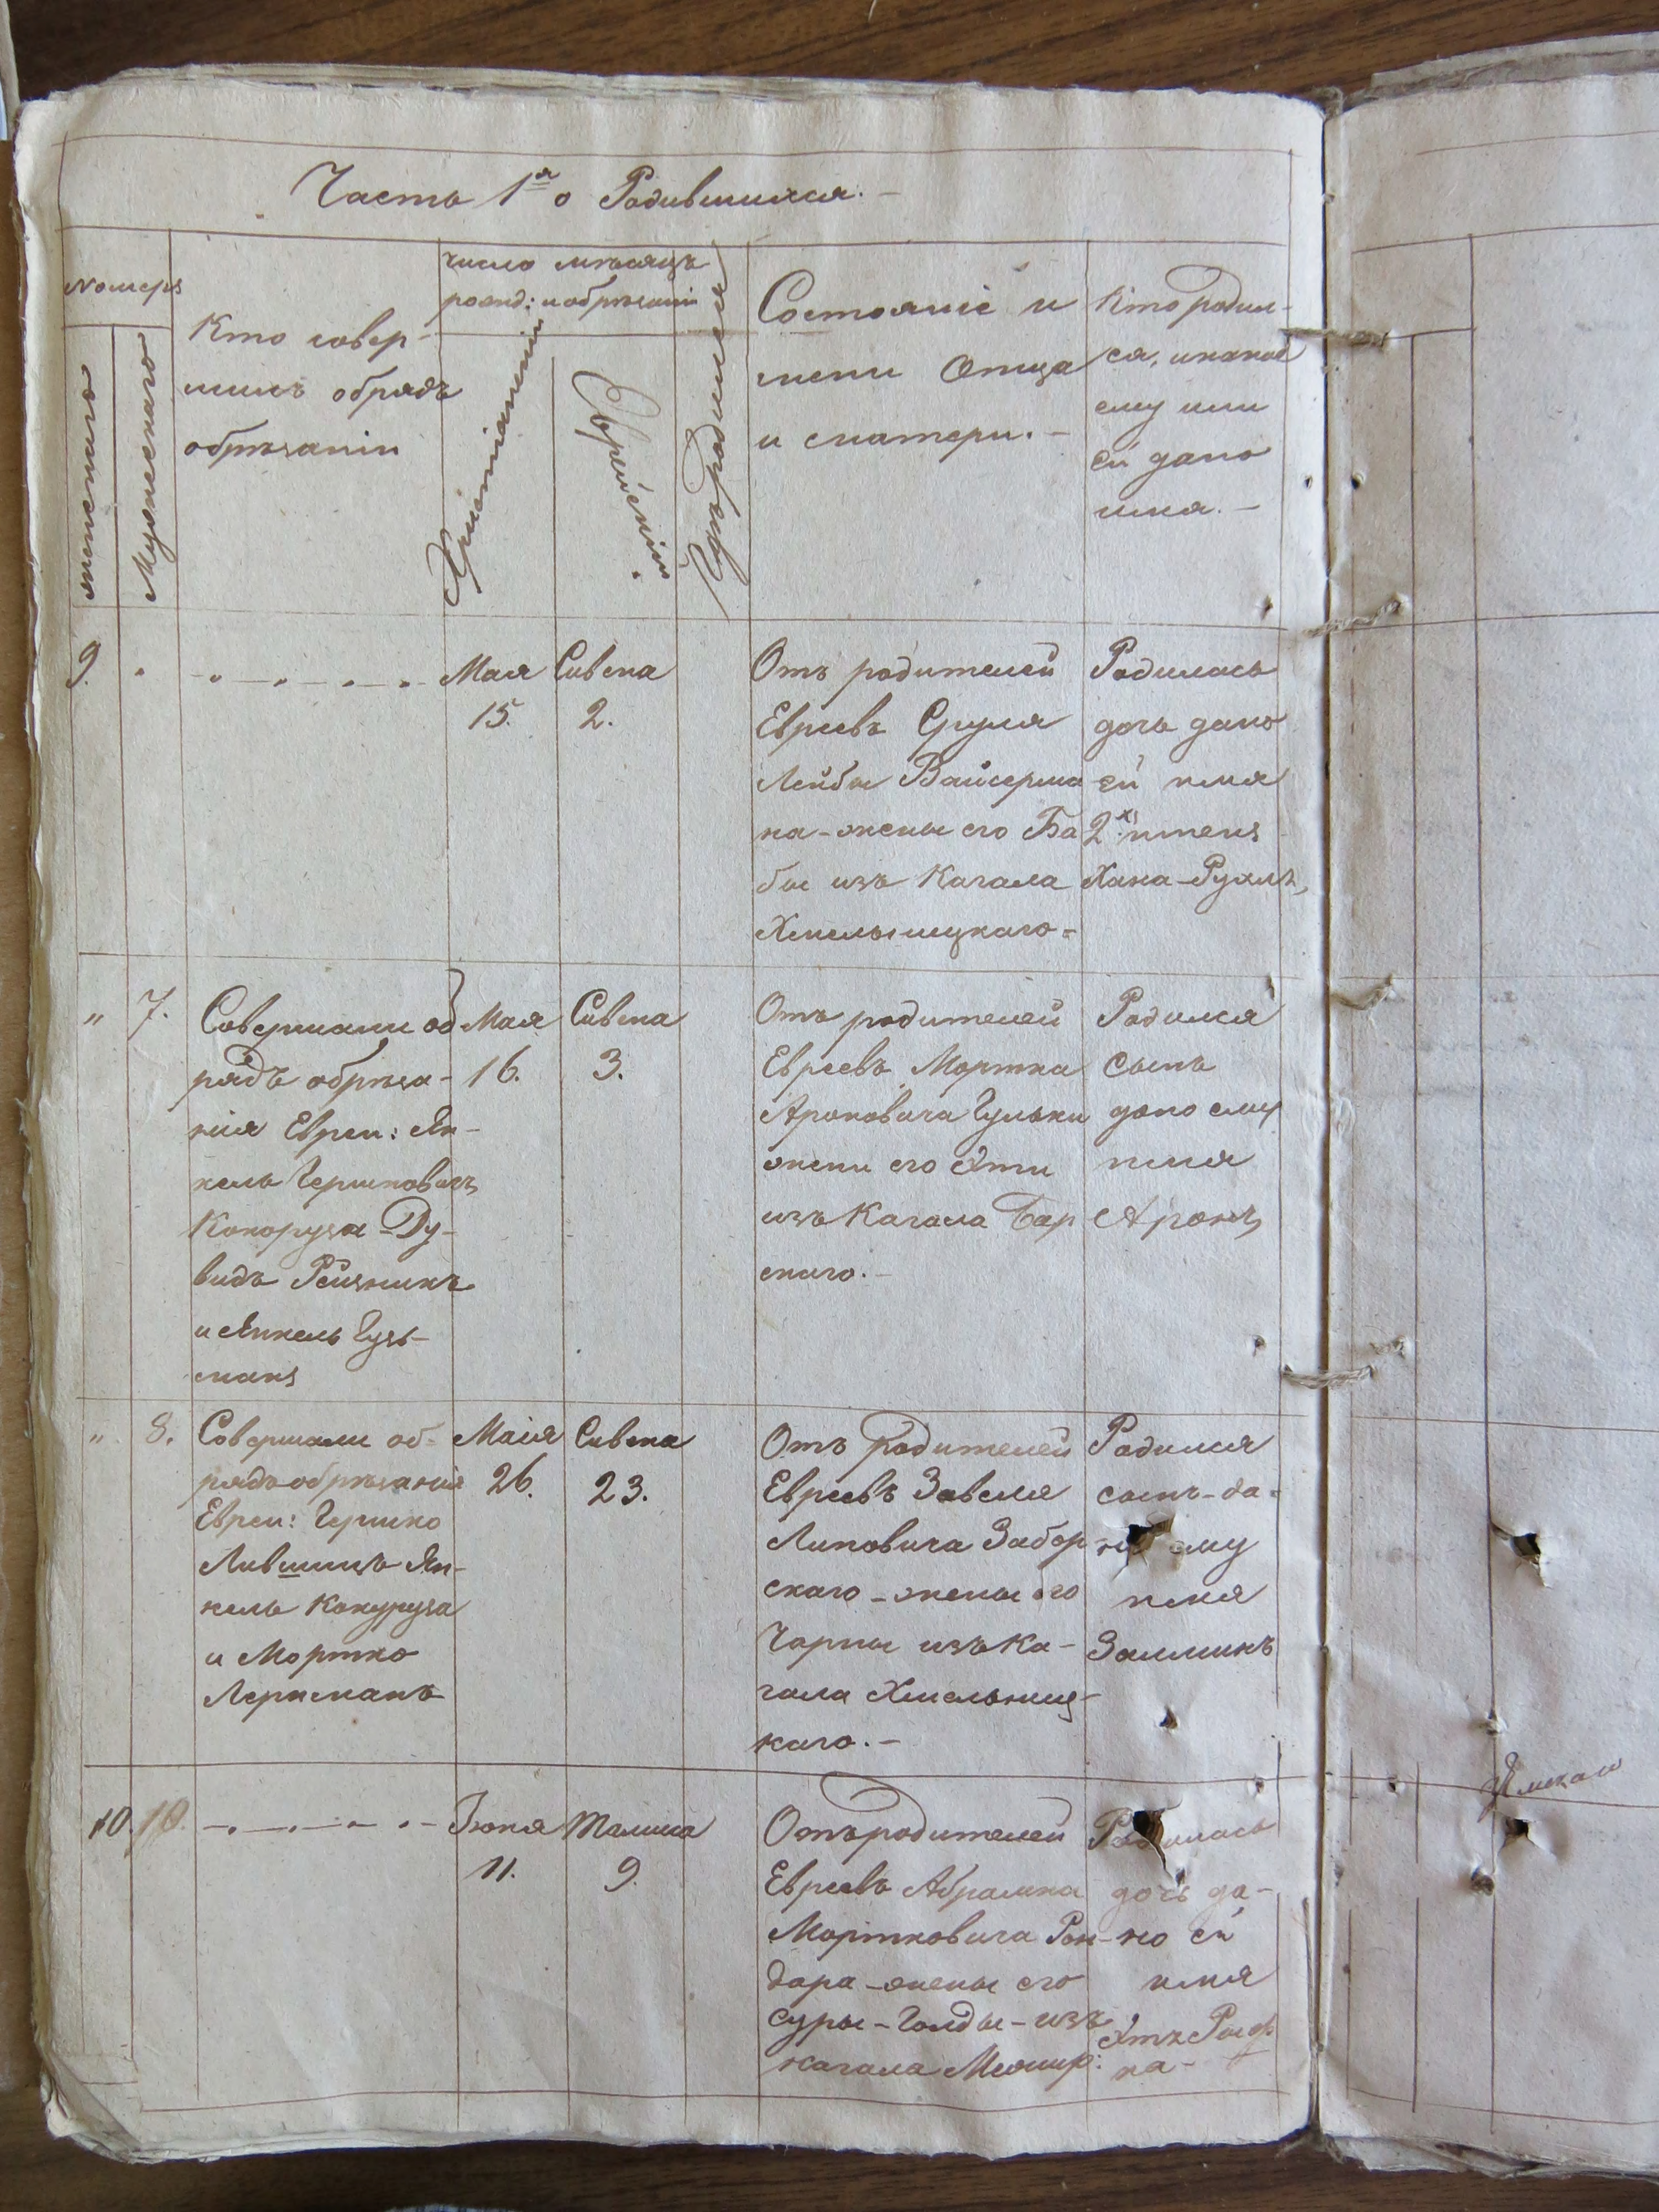 Часть 1я о Родившихся. -
Номеръ
женскаго
Мужескаго
Кто совер-
шилъ обрядъ
обрезанія
число месяцъ
рожд: и обрезанія
Христіанскій
Еврейскій
Где родился
Состояніе и
имени Отца
и матери. -
Кто родил-
ся, и какое
ему или
ей дано
имя. -
9.
Мая
15.
Сивена
2.
Отъ родителей
Евреевъ Сруля
Лейбы Вайсерма
на - жены его Ба
бы изъ Кагала
Хмельницкаго -
Родилась
дочь дано
ей имя
2х именъ
Хана - Рухль
" 7.
Совершали об
рядъ обреза-
нія Евреи: Ян-
кель Гершковичъ
Кокоруза - Ду-
видъ Рейзникъ
и Янкель Гузь-
манъ
Мая
16.
Сивена
3.
Отъ родителей
Евреевъ Мортка
Ароновича Гульки
жены его Эти
изъ Кагала Бар
скаго. -
Родился
сынъ
дано ему
имя
Аронъ
" 8.
Совершали об-
рядъ обрезанія
Евреи: Гершко
Лившицъ Ян-
кель Кокуруза
и Мортко
Лернманъ
Маія
26.
Сивена
23.
Отъ родителей
Евреевъ Завеля
Липовича Забор
скаго - жены его
Чарны изъ Ка-
гала Хмельниц-
каго. -
Родился
сынъ - да-
но ему
имя
Залминъ
10. 10.
Іюня
11.
Тамиса
9.
Отъ родителей
Евреевъ Абрамка
Мортковича Рон-
дара - жены его
Суры - Голды - изъ
кагала Межир:
Родилась
дочь да-
но ей
имя
Этя Рыф
ка -